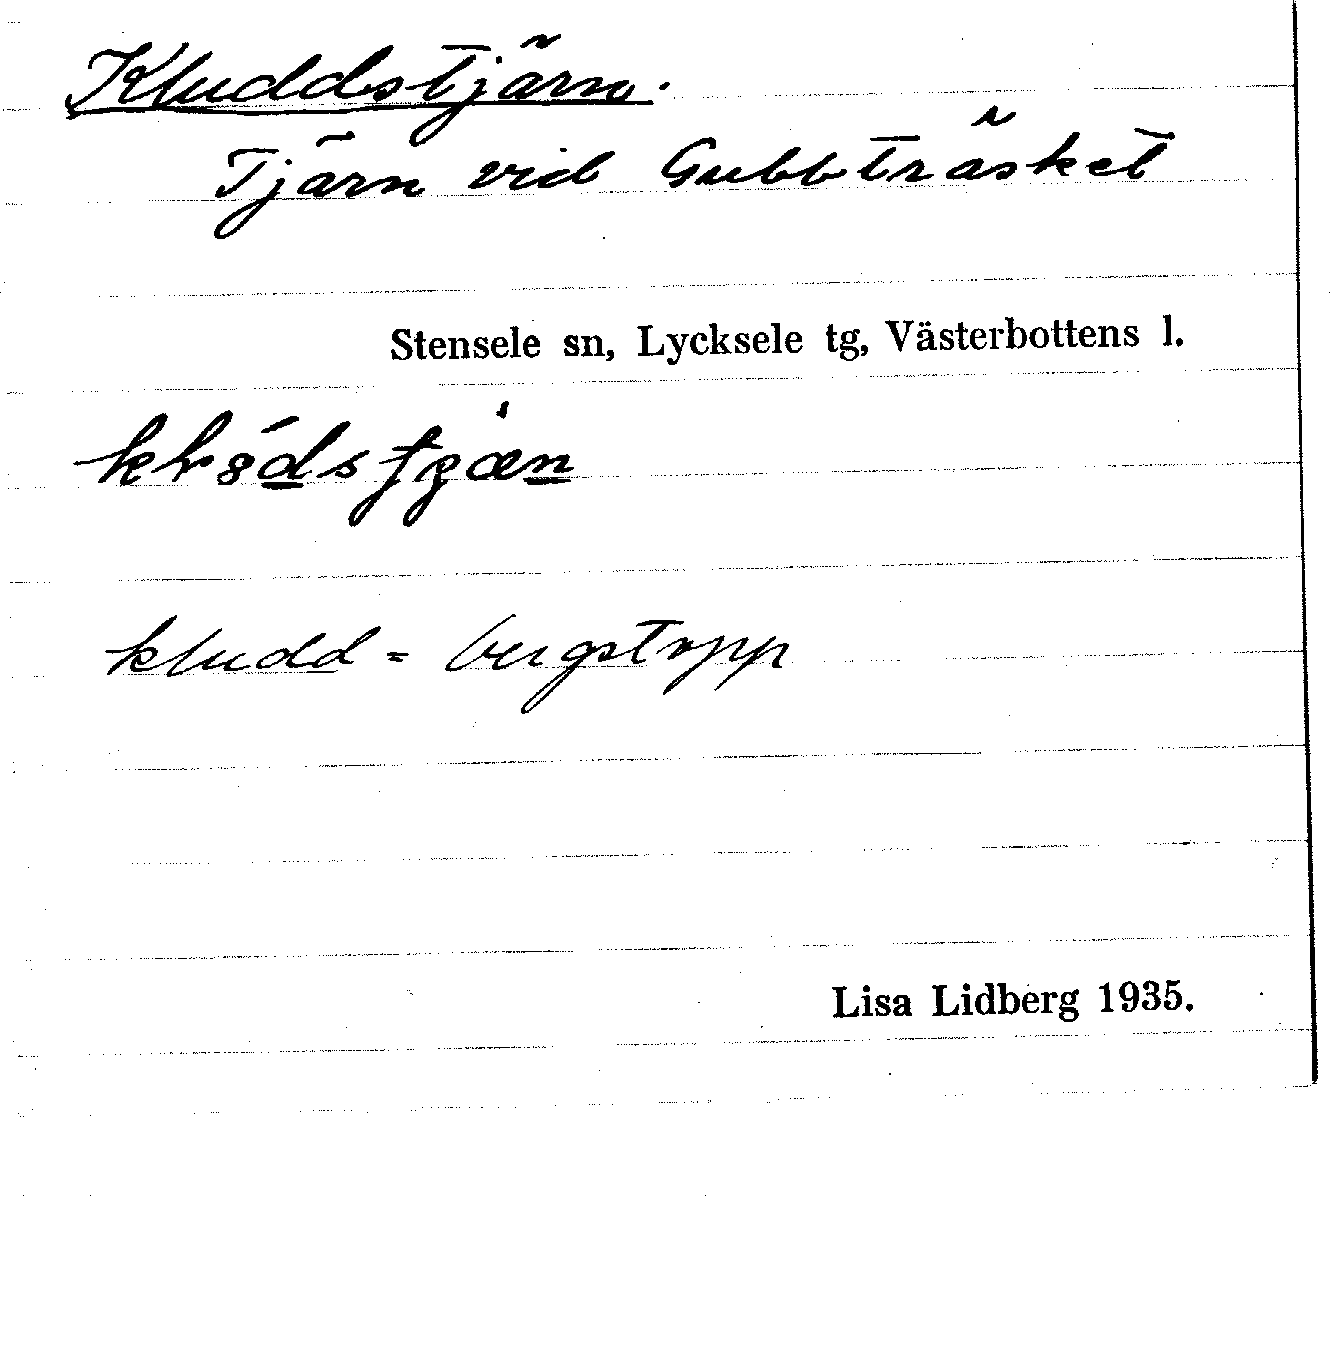 Kluddstjärn.
Tjärn vid Gubbträsket
Stensele sn, Lycksele tg, Västerbottens l.
kludd = bergstopp
Lisa Lidberg 1935.